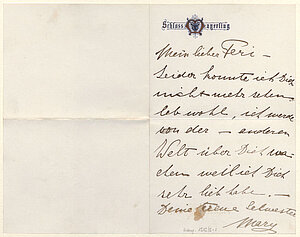 Schloss Mayerling
Mein lieber Feri –
Leider konnte ich Dich
nicht mehr sehen
leb wohl, ich werde
von der – anderen
Welt über Dich wa-
chen weil ich Dich
sehr lieb habe. –
Deine treue Schwester
Mary